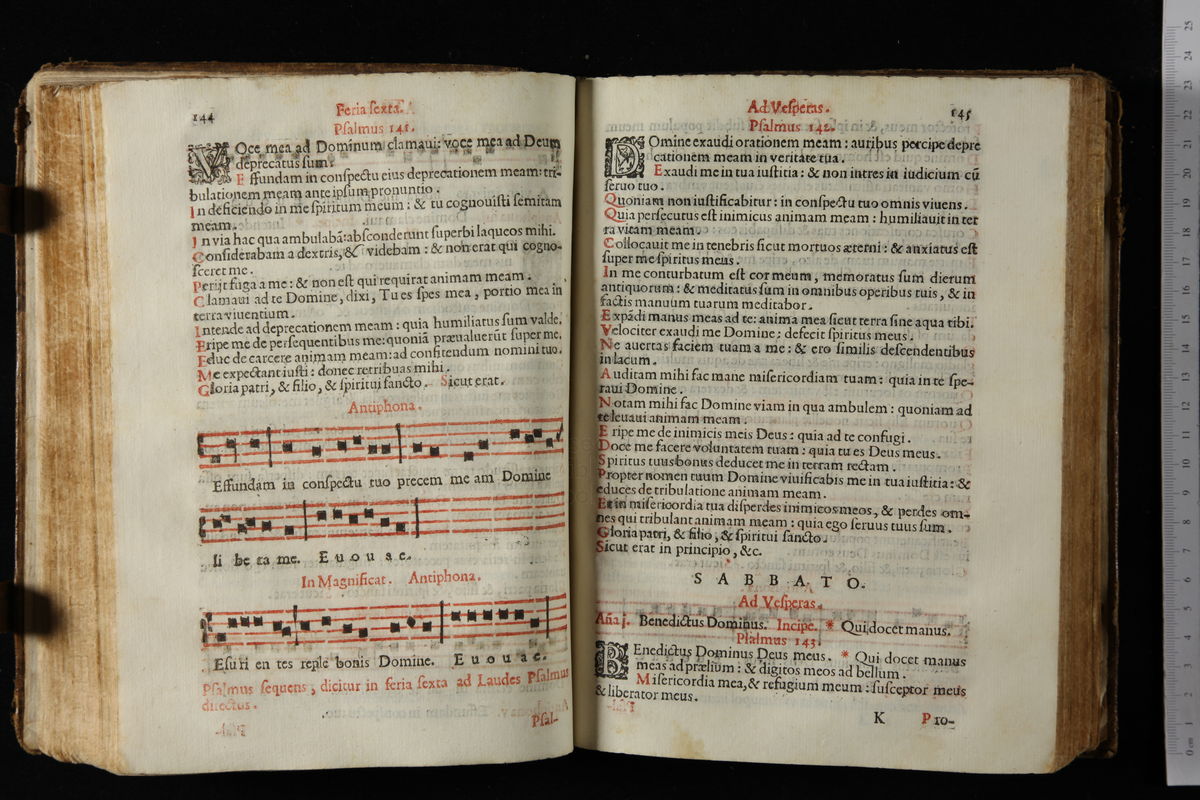 144
Feria sexta.
Psalmus 141.
VOce mea ad Dominum clamaui: voce mea ad Deum
deprecatus sum.
Effundam in conspectu eius deprecationem meam: tri-
bulationem meam ante ipsum pronuntio.
In deficiendo in me spiritum meum: & tu cognouisti semitam
meam.
In via hac qua ambulabã: absconderunt superbi laqueos mihi.
Considerabam a dextris, & videbam: & non erat qui cogno-
sceret me.
Perijt fuga a me: & non est qui requirat animam meam.
Clamaui ad te Domine, dixi, Tu es spes mea, portio mea in
terra viuentium.
Intende ad deprecationem meam: quia humiliatus sum valde.
Eripe me de persequentibus me: quoniã præualuerũt super me.
Educ de carcere animam meam: ad confitendum nomini tuo.
Me expectant iusti: donec retribuas mihi.
Gloria patri, & filio, & spiritui sancto. Sicut erat.
Antiphona.
Effundam in conspectu tuo precem me am Domine
li be ra me. E u o u a e.
In Magnificat. Antiphona.
Esuri en tes reple bonis Domine. E u o u a e.
Psalmus sequens, dicitur in feria sexta ad Laudes Psalmus
directus.
Psal-
Ad Vesperas.
145
Psalmus 142.
DOmine exaudi orationem meam: auribus percipe depre
cationem meam in veritate tua.
Exaudi me in tua iustitia: & non intres in iudicium cũ
seruo tuo.
Quoniam non iustificabitur: in conspectu tuo omnis viuens.
Quia persecutus est inimicus animam meam: humiliauit in ter
ra vitam meam.
Collocauit me in tenebris sicut mortuos æterni: & anxiatus est
super me spiritus meus.
In me conturbatum est cor meum, memoratus sum dierum
antiquorum: & meditatus sum in omnibus operibus tuis, & in
factis manuum tuarum meditabor.
Expãdi manus meas ad te: anima mea sicut terra sine aqua tibi.
Velociter exaudi me Domine: defecit spiritus meus.
Ne auertas faciem tuam a me: & ero similis descendentibus
in lacum.
Auditam mihi fac mane misericordiam tuam: quia in te spe-
raui Domine.
Notam mihi fac Domine viam in qua ambulem: quoniam ad
te leuaui animam meam.
Eripe me de inimicis meis Deus: quia ad te confugi.
Doce me facere voluntatem tuam: quia tu es Deus meus.
Spiritus tuus bonus deducet me in terram rectam.
Propter nomen tuum Domine viuificabis me in tua iustitia: &
educes de tribulatione animam meam.
Et in misericordia tua disperdes inimicos meos, & perdes om-
nes qui tribulant animam meam: quia ego seruus tuus sum.
Gloria patri, & filio, & spiritui sancto.
Sicut erat in principio, &c.
SABBATO.
Ad Vesperas.
Aña j. Benedictus Dominus. Incipe. * Qui docet manus.
Psalmus 143.
BEnedictus Dominus Deus meus. * Qui docet manus
meas ad prælium: & digitos meos ad bellum.
Misericordia mea, & refugium meum: susceptor meus
& liberator meus.
K Pro-